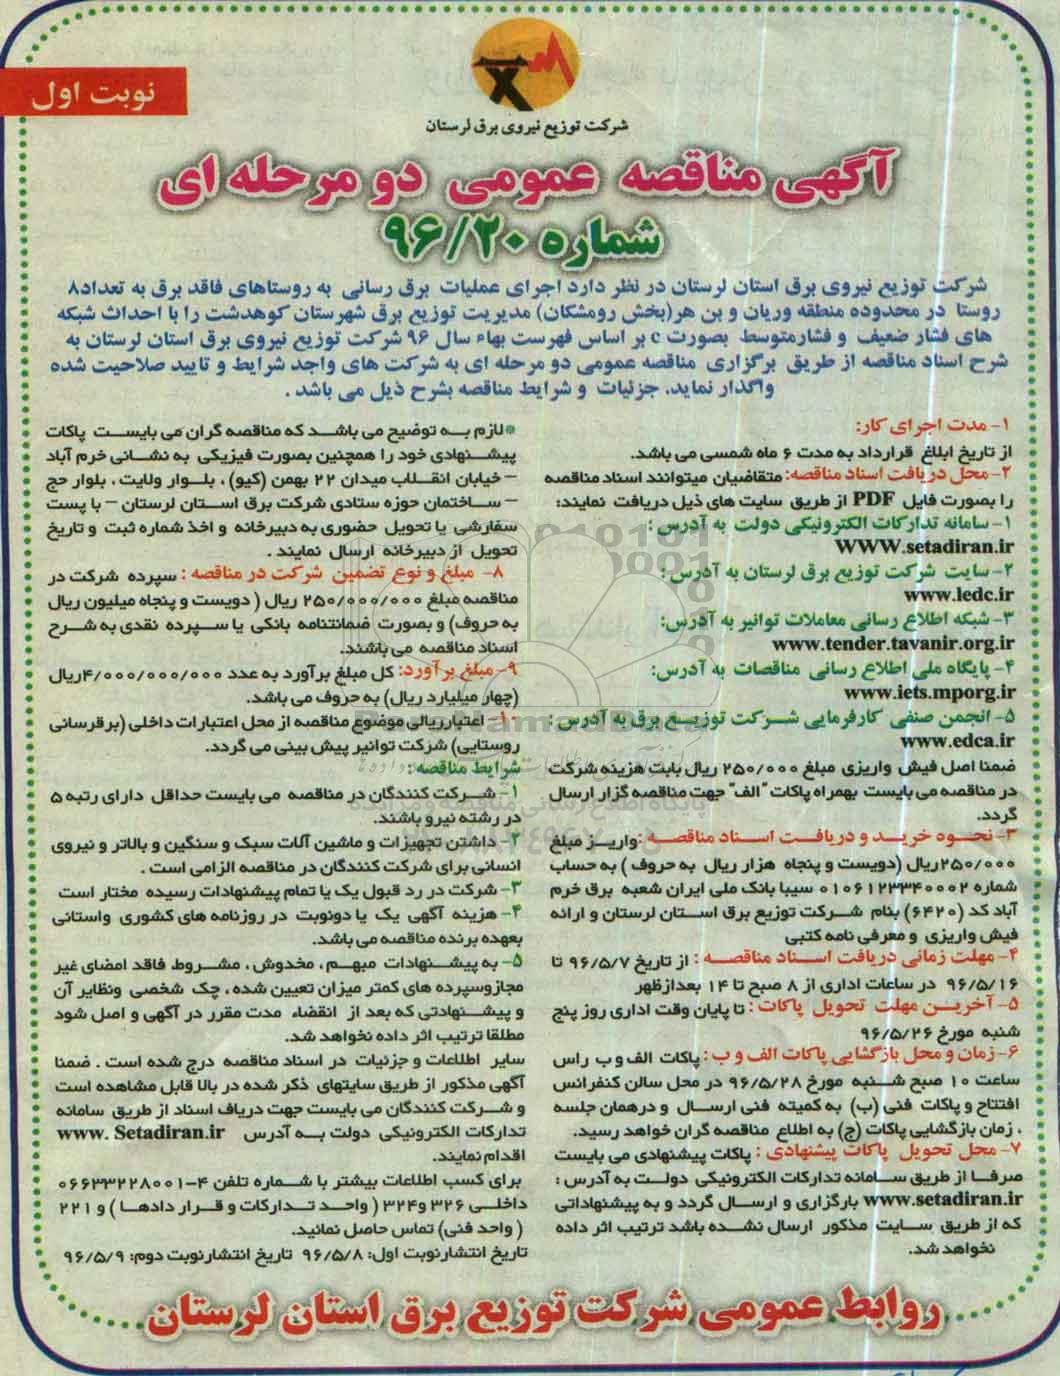 نوبت اول
شرکت توزیع نیروی برق لرستان
آگهی مناقصه عمومی دو مرحله ای
شماره ۹۶/۲۰
شرکت توزیع نیروی برق استان لرستان در نظر دارد اجرای عملیات برق رسانی به روستاهای فاقد برق به تعداد۸
روستا در محدوده منطقه وریان و بن هر(بخش رومشکان) مدیریت توزیع برق شهرستان کوهدشت را با احداث شبکه
های فشار ضعیف و فشارمتوسط بصورت c بر اساس فهرست بهاء سال ۹۶ شرکت توزیع نیروی برق استان لرستان به
شرح اسناد مناقصه از طریق برگزاری مناقصه عمومی دو مرحله ای به شرکت های واجد شرایط و تایید صلاحیت شده
واگذار نماید. جزئیات و شرایط مناقصه بشرح ذیل می باشد .
۱- مدت اجرای کار:
از تاریخ ابلاغ قرارداد به مدت ۶ ماه شمسی می باشد.
۲- محل دریافت اسناد مناقصه: متقاضیان میتوانند اسناد مناقصه
را بصورت فایل PDF از طریق سایت های ذیل دریافت نمایند:
۱- سامانه تدارکات الکترونیکی دولت به آدرس :
WWW.setadiran.ir
۲- سایت شرکت توزیع برق لرستان به آدرس :
www.ledc.ir
۳- شبکه اطلاع رسانی معاملات توانیر به آدرس:
www.tender.tavanir.org.ir
۴- پایگاه ملی اطلاع رسانی مناقصات به آدرس:
www.iets.mporg.ir
۵- انجمن صنفی کارفرمایی شرکت توزیع برق به آدرس :
www.edca.ir
ضمنا اصل فیش واریزی مبلغ ۲۵۰/۰۰۰ ریال بابت هزینه شرکت
در مناقصه می بایست بهمراه پاکات "الف" جهت مناقصه گزار ارسال
گردد.
۳- نحوه خرید و دریافت اسناد مناقصه :واریز مبلغ
۲۵۰/۰۰۰ریال (دویست و پنجاه هزار ریال به حروف ) به حساب
شماره ۰۱۰۶۱۲۳۳۴۰۰۰۲ سیبا بانک ملی ایران شعبه برق خرم
آباد کد (۶۴۲۰) بنام شرکت توزیع برق استان لرستان و ارائه
فیش واریزی و معرفی نامه کتبی
۴- مهلت زمانی دریافت اسناد مناقصه : از تاریخ ۹۶/۵/۷ تا
۹۶/۵/۱۶ در ساعات اداری از ۸ صبح تا ۱۴ بعدازظهر
۵- آخرین مهلت تحویل پاکات : تا پایان وقت اداری روز پنج
شنبه مورخ ۹۶/۵/۲۶
۶- زمان و محل بازگشایی پاکات الف و ب : پاکات الف و ب راس
ساعت ۱۰ صبح شنبه مورخ ۹۶/۵/۲۸ در محل سالن کنفرانس
افتتاح و پاکات فنی (ب) به کمیته فنی ارسال و درهمان جلسه
، زمان بازگشایی پاکات (ج) به اطلاع مناقصه گران خواهد رسید.
۷- محل تحویل پاکات پیشنهادی : پاکات پیشنهادی می بایست
صرفا از طریق سامانه تدارکات الکترونیکی دولت به آدرس :
www.setadiran.ir بارگزاری و ارسال گردد و به پیشنهاداتی
که از طریق سایت مذکور ارسال نشده باشد ترتیب اثر داده
نخواهد شد.
*لازم به توضیح می باشد که مناقصه گران می بایست پاکات
پیشنهادی خود را همچنین بصورت فیزیکی به نشانی خرم آباد
– خیابان انقلاب میدان ۲۲ بهمن (کیو) ، بلوار ولایت ، بلوار حج
– ساختمان حوزه ستادی شرکت برق استان لرستان – با پست
سفارشی یا تحویل حضوری به دبیرخانه و اخذ شماره ثبت و تاریخ
تحویل از دبیرخانه ارسال نمایند .
۸- مبلغ و نوع تضمین شرکت در مناقصه : سپرده شرکت در
مناقصه مبلغ ۲۵۰/۰۰۰/۰۰۰ ریال ( دویست و پنجاه میلیون ریال
به حروف) و بصورت ضمانتنامه بانکی یا سپرده نقدی به شرح
اسناد مناقصه می باشند.
۹- مبلغ برآورد: کل مبلغ برآورد به عدد ۴/۰۰۰/۰۰۰/۰۰۰ریال
(چهار میلیارد ریال) به حروف می باشد.
۱۰- اعتبارریالی موضوع مناقصه از محل اعتبارات داخلی (برقرسانی
روستایی) شرکت توانیر پیش بینی می گردد.
شرایط مناقصه :
۱- شرکت کنندگان در مناقصه می بایست حداقل دارای رتبه ۵
در رشته نیرو باشند.
۲- داشتن تجهیزات و ماشین آلات سبک و سنگین و بالاتر و نیروی
انسانی برای شرکت کنندگان در مناقصه الزامی است .
۳- شرکت در رد قبول یک یا تمام پیشنهادات رسیده مختار است
۴- هزینه آگهی یک یا دونوبت در روزنامه های کشوری واستانی
بعهده برنده مناقصه می باشد.
۵- به پیشنهادات مبهم ، مخدوش ، مشروط فاقد امضای غیر
مجازوسپرده های کمتر میزان تعیین شده ، چک شخصی ونظایر آن
و پیشنهادتی که بعد از انقضاء مدت مقرر در آگهی و اصل شود
مطلقا ترتیب اثر داده نخواهد شد.
سایر اطلاعات و جزئیات در اسناد مناقصه درج شده است . ضمنا
آگهی مذکور از طریق سایتهای ذکر شده در بالا قابل مشاهده است
و شرکت کنندگان می بایست جهت دریاف اسناد از طریق سامانه
تدارکات الکترونیکی دولت به آدرس www. Setadiran.ir
اقدام نمایند.
برای کسب اطلاعات بیشتر با شماره تلفن ۴-۰۶۶۳۳۲۲۸۰۰۱
داخلی ۳۲۶ و۳۲۴ ( واحد تدارکات و قرار دادها ) و ۲۲۱
( واحد فنی) تماس حاصل نمائید.
تاریخ انتشارنوبت اول: ۹۶/۵/۸ تاریخ انتشارنوبت دوم: ۹۶/۵/۹
روابط عمومی شرکت توزیع برق استان لرستان